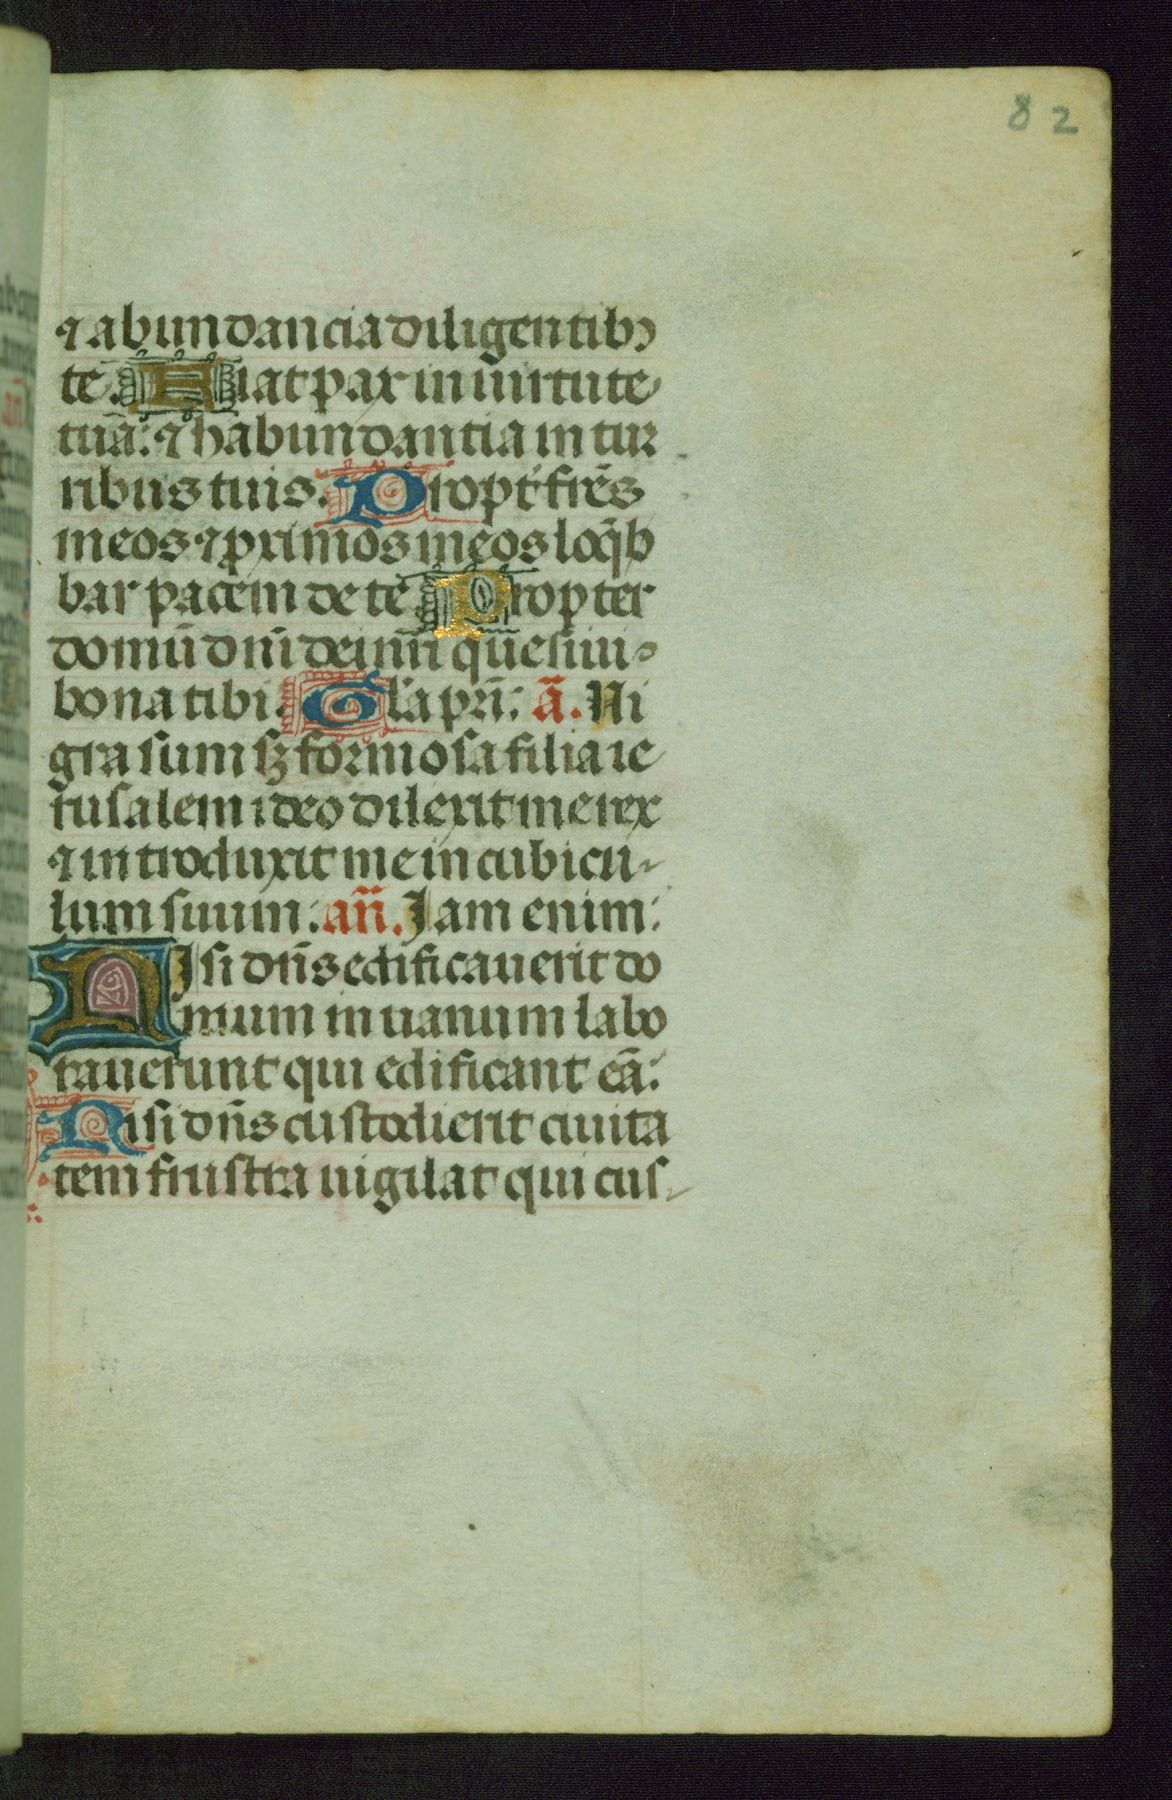 82
⁊ abundancia diligentibꝰ
te. Fiat pax in uirtute
tuā: ⁊ habundantia in tur
ribus tuis. Propt̄ fr̄es
meos ⁊ ꝓximos meos loq̄b
bar pacem de te Propter
domū dn̄i dei nr̄i quesiui
bona tibi. Gl̄a pr̄i: ā. Ni
gra sum sꝫ formosa filia ie
rusalem ideo dilexit me rex
⁊ introduxit me in cubicu-
lum suum: an̄. Jam enim:
NJsi dn̄s edificauerit do
mum in uanum labo
rauerunt qui edificant eā:
Nisi dn̄s custodierit ciuita
tem frustra uigilat qui cus-